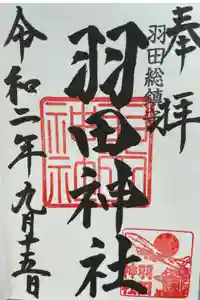 奉拝
羽田総鎮守
羽田神社
令和二年九月十五日